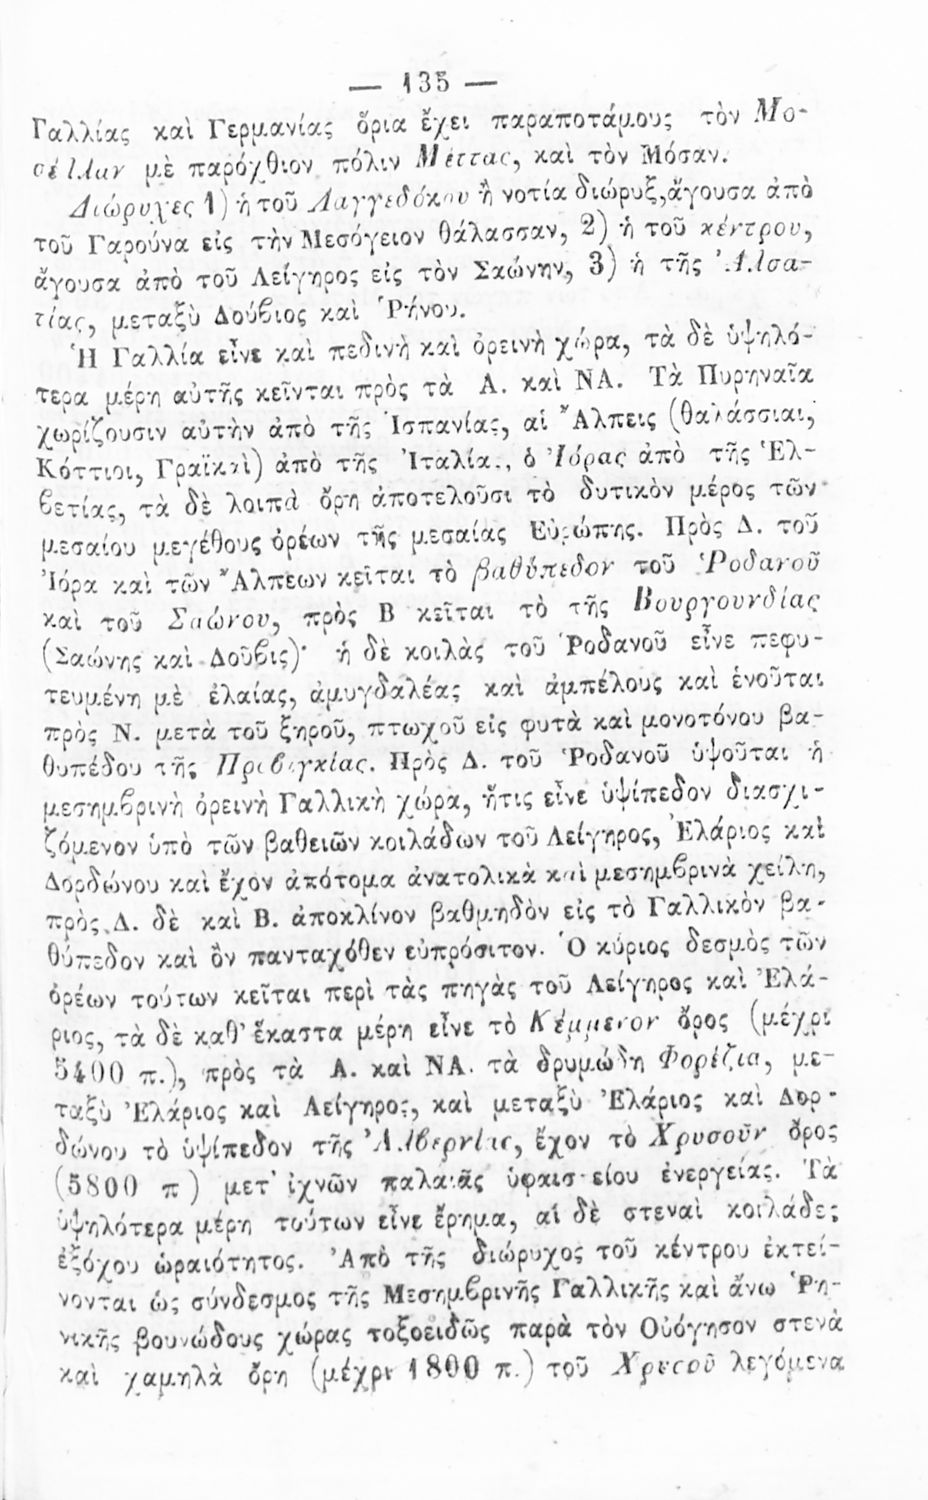 — 135 —
Γαλλίας καὶ Γερμανίας ὅρια ἔχει παραποτάμους τὸν Μο-
σέλλαν μὲ παρόχθιον πόλιν Μέττας, καὶ τὸν Μόσαν.
Διώρυχες 1) ἡ τοῦ Λαγγεδόκου ἢ νοτία διώρυξ, ἄγουσα ἀπὸ
τοῦ Γαρούνα εἰς τὴν Μεσόγειον θάλασσαν, 2) ἡ τοῦ κέντρου,
ἄγουσα ἀπὸ τοῦ Λείγηρος εἰς τὸν Σαώνην, 3) ἡ τῆς Ἀλσα-
τίας, μεταξὺ Δούβιος καὶ Ῥήνου.
Ἡ Γαλλία εἶνε καὶ πεδινὴ καὶ ὀρεινὴ χώρα, τὰ δὲ ὑψηλό-
τερα μέρη αὐτῆς κεῖνται πρὸς τὰ Α. καὶ ΝΑ. Τὰ Πυρηναῖα
χωρίζουσιν αὐτὴν ἀπὸ τῆς Ἱσπανίας, αἱ Ἄλπεις (θαλάσσιαι,
Κόττιοι, Γραϊκαὶ) ἀπὸ τῆς Ἰταλίας, ὁ Ἰόρας ἀπὸ τῆς Ἑλ-
βετίας, τὰ δὲ λοιπὰ ὄρη ἀποτελοῦσι τὸ δυτικὸν μέρος τῶν
μεσαίου μεγέθους ὀρέων τῆς μεσαίας Εὐρώπης. Πρὸς Δ. τοῦ
Ἰόρα καὶ τῶν Ἄλπεων κεῖται τὸ βαθύπεδον τοῦ Ῥοδανοῦ
καὶ τοῦ Σαώνου, πρὸς Β κεῖται τὸ τῆς Βουργουνδίας
(Σαώνης καὶ Δοῦβις)· ἡ δὲ κοιλὰς τοῦ Ῥοδανοῦ εἶνε πεφυ-
τευμένη μὲ ἐλαίας, ἀμυγδαλέας καὶ ἀμπέλους καὶ ἑνοῦται
πρὸς Ν. μετὰ τοῦ ξηροῦ, πτωχοῦ εἰς φυτὰ καὶ μονοτόνου βα-
θυπέδου τῆς Προβιγκίας. Πρὸς Δ. τοῦ Ῥοδανοῦ ὑψοῦται ἡ
μεσημβρινὴ ὀρεινὴ Γαλλικὴ χώρα, ἥτις εἶνε ὑψίπεδον διασχι-
ζόμενον ὑπὸ τῶν βαθειῶν κοιλάδων τοῦ Λείγηρος, Ἐλάριος καὶ
Δορδώνου καὶ ἔχον ἀπότομα ἀνατολικὰ καὶ μεσημβρινὰ χείλη,
πρὸς Δ. δὲ καὶ Β. ἀποκλίνον βαθμηδὸν εἰς τὸ Γαλλικὸν βα-
θύπεδον καὶ ὂν πανταχόθεν εὐπρόσιτον. Ὁ κύριος δεσμὸς τῶν
ὀρέων τούτων κεῖται περὶ τὰς πηγὰς τοῦ Λείγηρος καὶ Ἐλά-
ριος, τὰ δὲ καθ' ἕκαστα μέρη εἶνε τὸ Κέμμενον ὄρος (μέχρι
5400 π.), πρὸς τὰ Α. καὶ ΝΑ. τὰ δρυμώδη Φορέζια, με-
ταξὺ Ἐλάριος καὶ Λείγηρος, καὶ μεταξὺ Ἐλάριος καὶ Δορ-
δώνου τὸ ὑψίπεδον τῆς Ἀλβερνίας, ἔχον τὸ Χρυσοῦν ὄρος
(5800 π) μετ' ἰχνῶν παλαιᾶς ὑφαιστείου ἐνεργείας. Τὰ
ὑψηλότερα μέρη τούτων εἶνε ἔρημα, αἱ δὲ στεναὶ κοιλάδες
ἐξόχου ὡραιότητος. Ἀπὸ τῆς διώρυχος τοῦ κέντρου ἐκτεί-
νονται ὡς σύνδεσμος τῆς Μεσημβρινῆς Γαλλικῆς καὶ ἄνω Ῥη-
νικῆς βουνώδους χώρας τοξοειδῶς παρὰ τὸν Οὐόγησον στενὰ
καὶ χαμηλὰ ὄρη (μέχρι 1800 π.) τοῦ Χρυσοῦ λεγόμενα